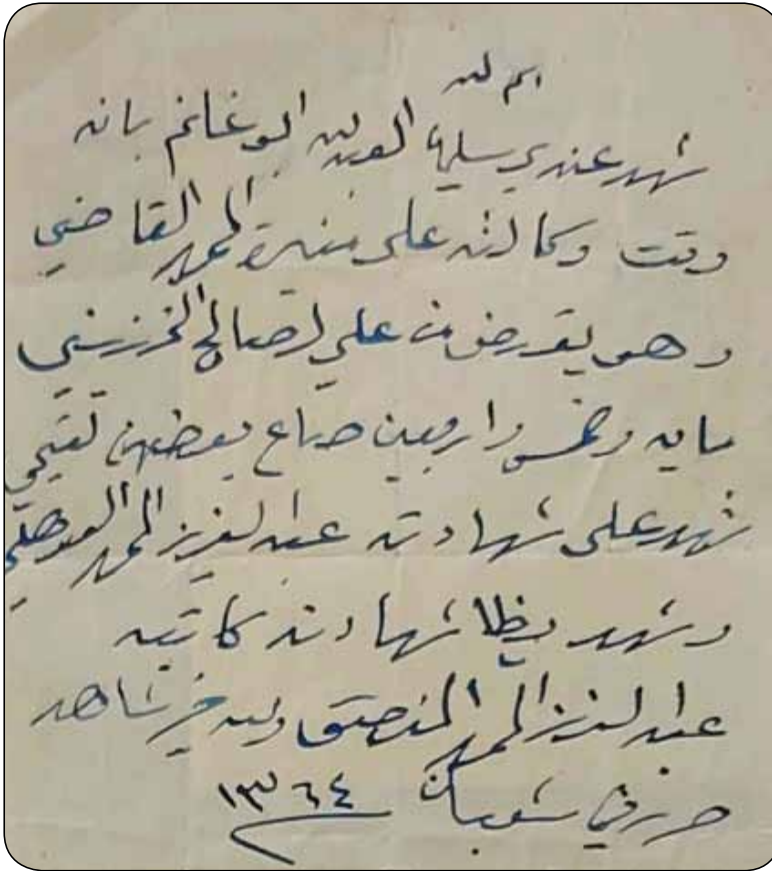 بسم الله
شهد عندي سليمان العبدالله ابو غانم بانه
وقت وكالته على منيرة المحمد القاضي
وهو يقرض من علي الصالح
مايه وخمس واربعين صاع بعضهن لقيمي
شهد على شهادته عبدالعزيز المحمد
وشهد ايظا شهادته كاتبه
عبدالعزيز المحمد والله خير شاهد
حرر في شعبان ١٣٦٤